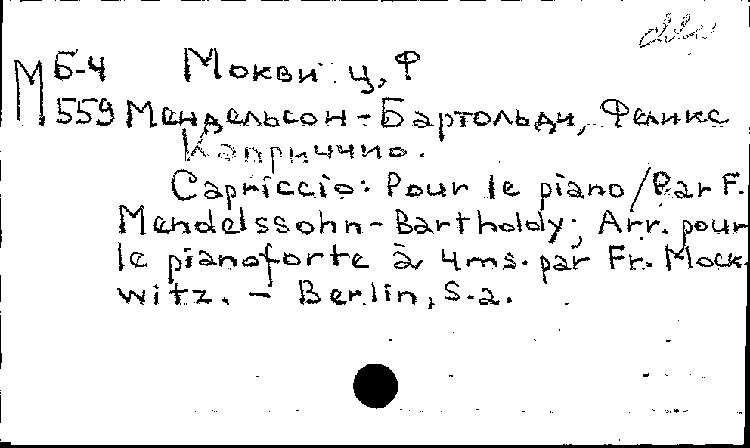 М Б-4 Мокви ц, Ф
559 Мендельсон-Бартольди, Феликс
Каприччио.
Capriccio: Pour le piano/Par F.
Mendelssohn-Bartholdy; Arr. pour
le pianoforte à 4ms. par Fr. Mock-
witz. – Berlin, S.a.